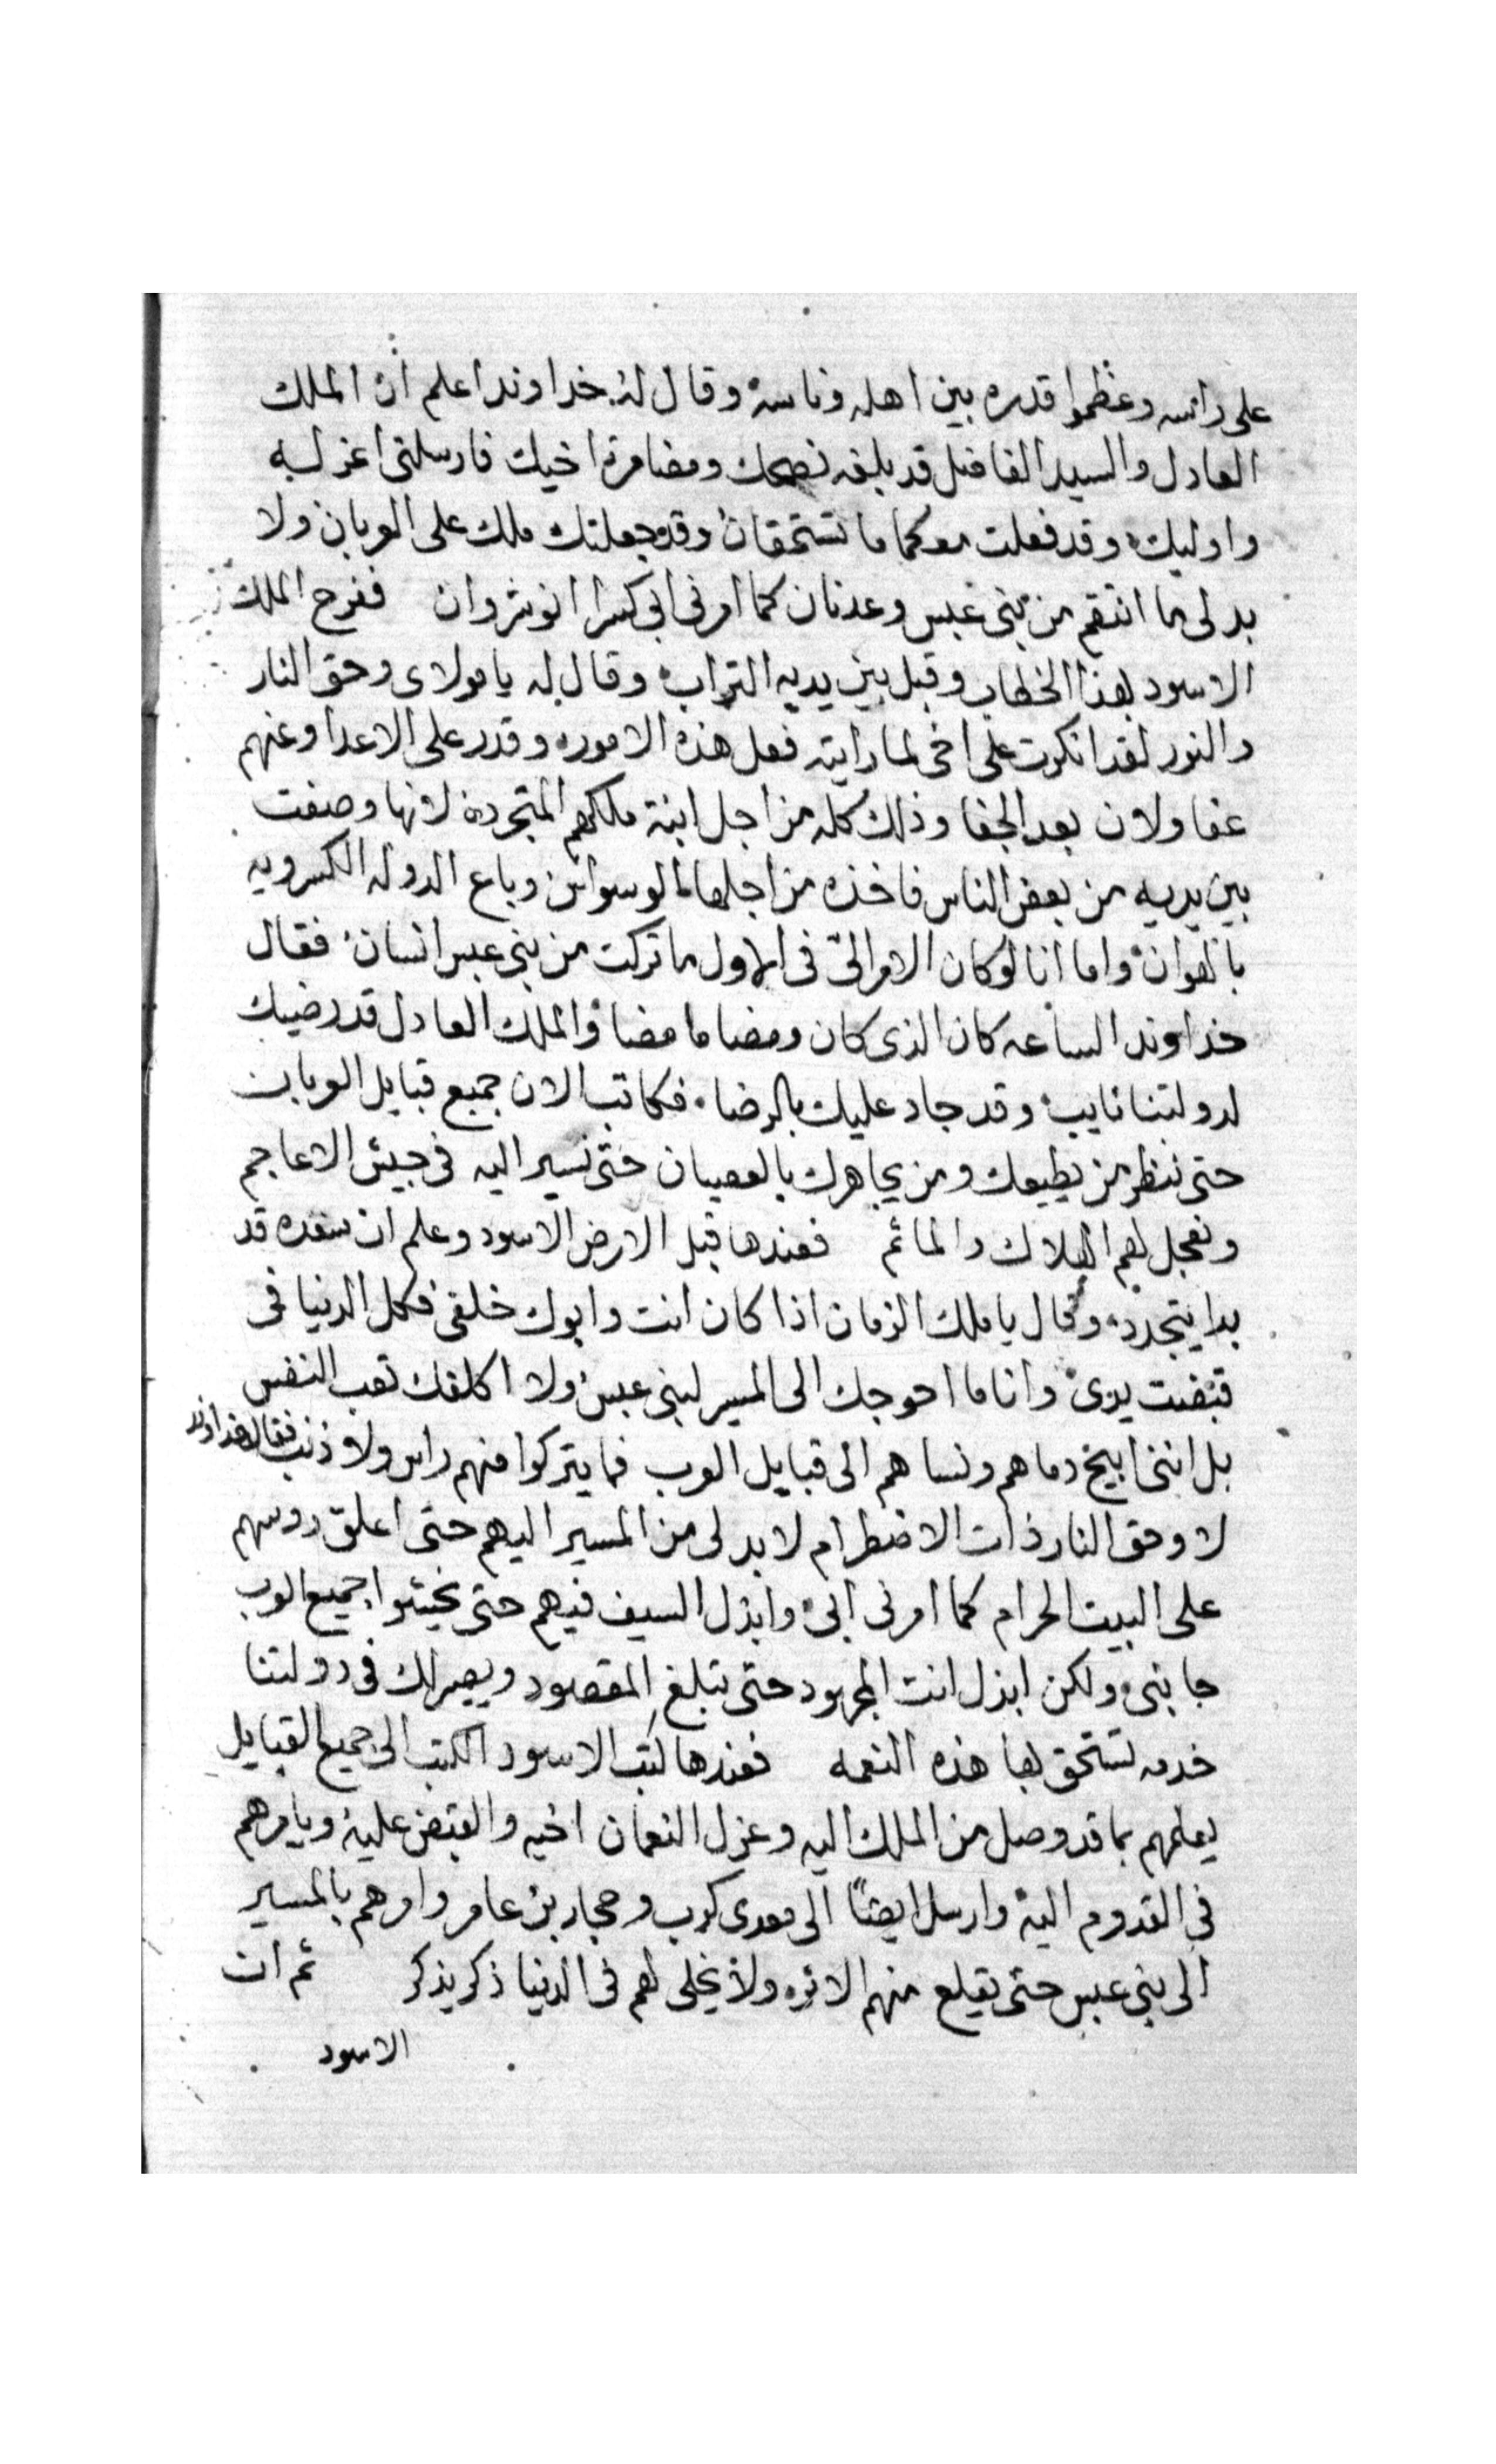 على راسه وعظموا قدره بين اهله وناسه وقال له خداوند اعلم ان الملك
العادل والسيد الفاضل قد بلغه نصحك ومضامرة اخيك فارسلنى اعزله
واوليك وقد فعلت معكما ما تستحقان وقد جعلتك ملك على العربان ولا
بد لى ما انتقم من بنى عبس وعدنان كما امرنى ابى كسرا انوشروان ففرح الملك
الاسود بهذا الخطاب وقبل بين يديه التراب وقال له يا مولاى وحق النار
والنور لقد انكرت على اخى لما رايته فعل هذه الامور وقدر على الاعدا وعنهم
عفا ولان بعد الجفا وذلك كله من اجل ابنة ملكهم المتجرده لانها وصفت
بين يديه من بعض الناس فاخذه من اجلها الوسواس وباع الدوله الكسرويه
بالهوان واما انا لو كان الامر الىّ فى الاول ما تركت من بنى عبس انسان فقال
خداوند الساعه كان الذى كان ومضا ما مضا والملك العادل قد رضيك
لدولتنا نايب وقد جاد عليك بالرضا فكاتب الان جميع قبايل العربان
حتى ننظر من يطيعك ومن يجاهرك بالعصيان حتى نسير اليه فى جيش الاعاجم
ونعجل لهم الهلاك والمائم فعندها قبل الارض الاسود وعلم ان سعده قد
بدا يتجدد وقال يا ملك الزمان اذا كان انت وابوك خلفى فكل الدنيا فى
قبضت يدى وانا ما احوجك الى المسير لبنى عبس ولا اكلفك تعب النفس
بل اننى ابيح دماهم ونساهم الى قبايل العرب فما يتركوا منهم راس ولا ذنب فقال خداوند
لا وحق النار ذات الاضطرام لا بد لى من المسير اليهم حتى اعلق روسهم
على البيت الحرام كما امرنى ابى وابذل السيف فيهم حتى يخشوا جميع العرب
جانبى ولكن ابذل انت المجهود حتى تبلغ المقصود ويصير لك فى دولتنا
خدمه تستحق بها هذه النعمه فعندها كتب الاسود الكتب الى جميع القبايل
يعلمهم بما قد وصل من الملك اليه وعزل النعمان اخيه والقبض عليه ويامرهم
فى القدوم اليه وارسل ايضًا الى معدى كرب وحجار بن عامر وامرهم بالمسير
الى بنى عبس حتى يقلع منهم الاثر ولا يخلى لهم فى الدنيا ذكر يذكر ثم ان
الاسود